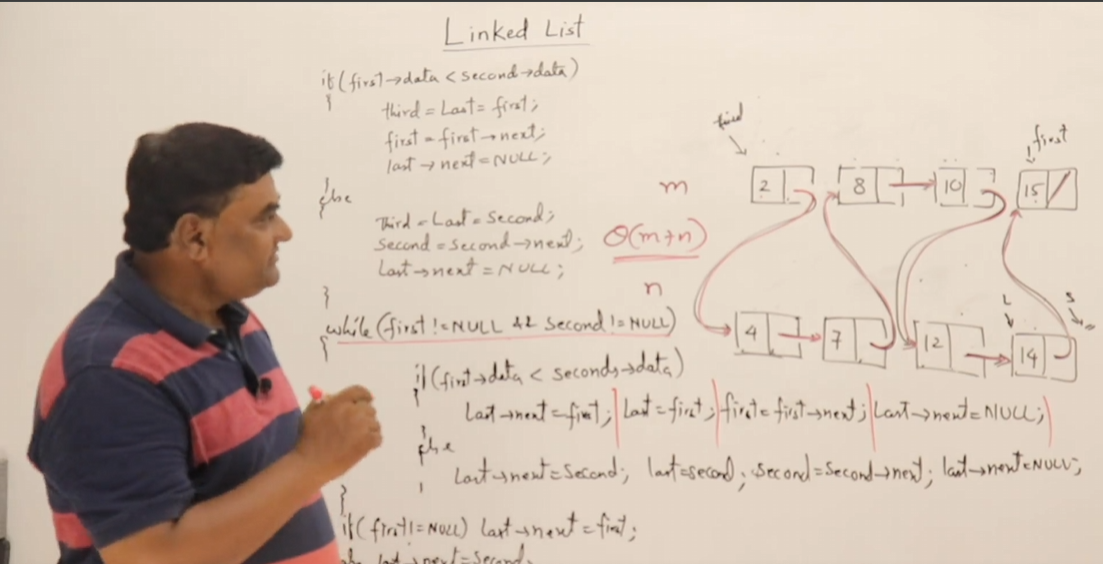 Linked List
if(first→data < second→data)
{
third = Last = first;
first = first→next;
last→next = NULL;
}
else
{
Third = Last = Second;
Second = Second→next;
Last→next = NULL;
}
while(first != NULL && Second != NULL)
{
if(first→data < second→data)
{
Last→next = first; | Last = first; | first = first→next; | Last→next = NULL; |
}
else
{
Last→next = Second; last = second; Second = Second→next; last→next = NULL;
}
}
if(first != NULL) Last→next = first;
else last→next = Second;
third
first
m
2 8 10 15
θ(m+n)
n
L S
4 7 12 14